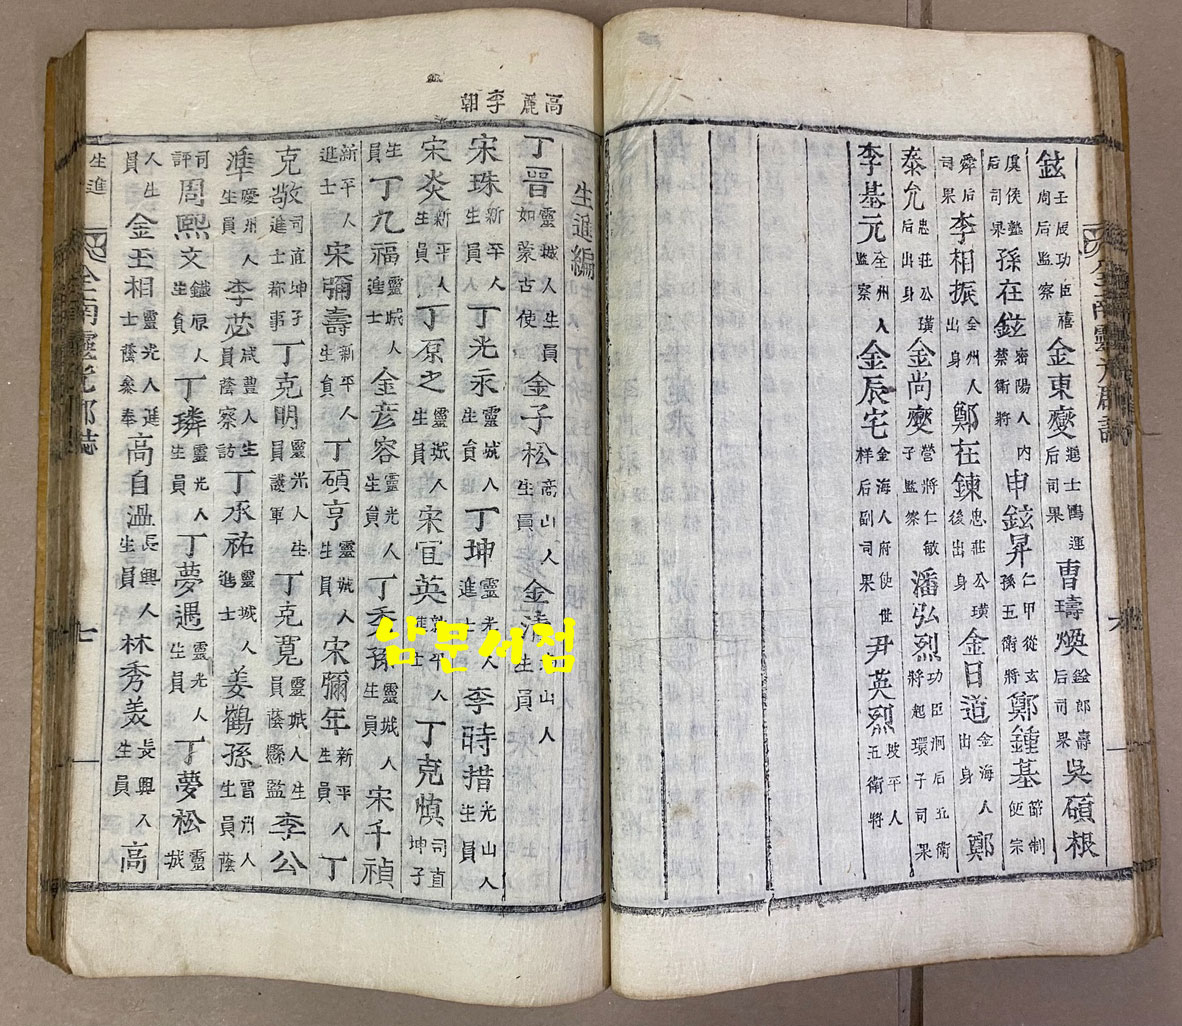 鉉壬辰功臣禧周后監察金東燮進士鵬運后司果曺璹煥銓郎壽后司果吳碩根
虞侯懿后司果孫在鉉密陽人禁衛將申鉉昇內仁甲從玄孫五衛將鄭鍾基節制使宗
舜后司果李相振全州人出身鄭在鍊忠莊公璜後出身金日道金海人出身鄭
泰允忠莊公璜后出身金尚燮營將仁敏子監察潘弘烈功臣泂后五衛將起環子司果
李基元全州人監察金辰宅金海人府使世样后副司果尹英烈坡平人五衛將
高麗 李朝
生進編
丁晉靈城人生員如蒙古使金子松高山人生員金清山人生員
宋珠新平人生員丁光永靈城人生員丁坤靈光人進士李時措光山人生員
宋炎新平人生員丁原之靈城人生員宋宜英新平人進士丁克慎司直坤子
生員丁九福靈城人進士金彦容靈光人生員丁秀孫靈城人生員宋千禎
新平人進士宋彌壽新平人生員丁碩亨靈城人生員宋彌年新平人生員丁
克敬司直坤子進士都事丁克明靈光人生員護軍丁克寬靈城人生員蔭縣監李公
準慶州人生員李苾咸豊人生員蔭察訪丁承祐靈城人進士姜鶴孫晋州人生員蔭
司評周熙文鐵原人生員丁璘靈光人生員丁夢遇靈光人生員丁夢松靈城
人生員金玉相靈光人進士蔭參奉高自温長興人生員林秀義長興人生員高
生進 全南靈光郡誌 七
남문서점